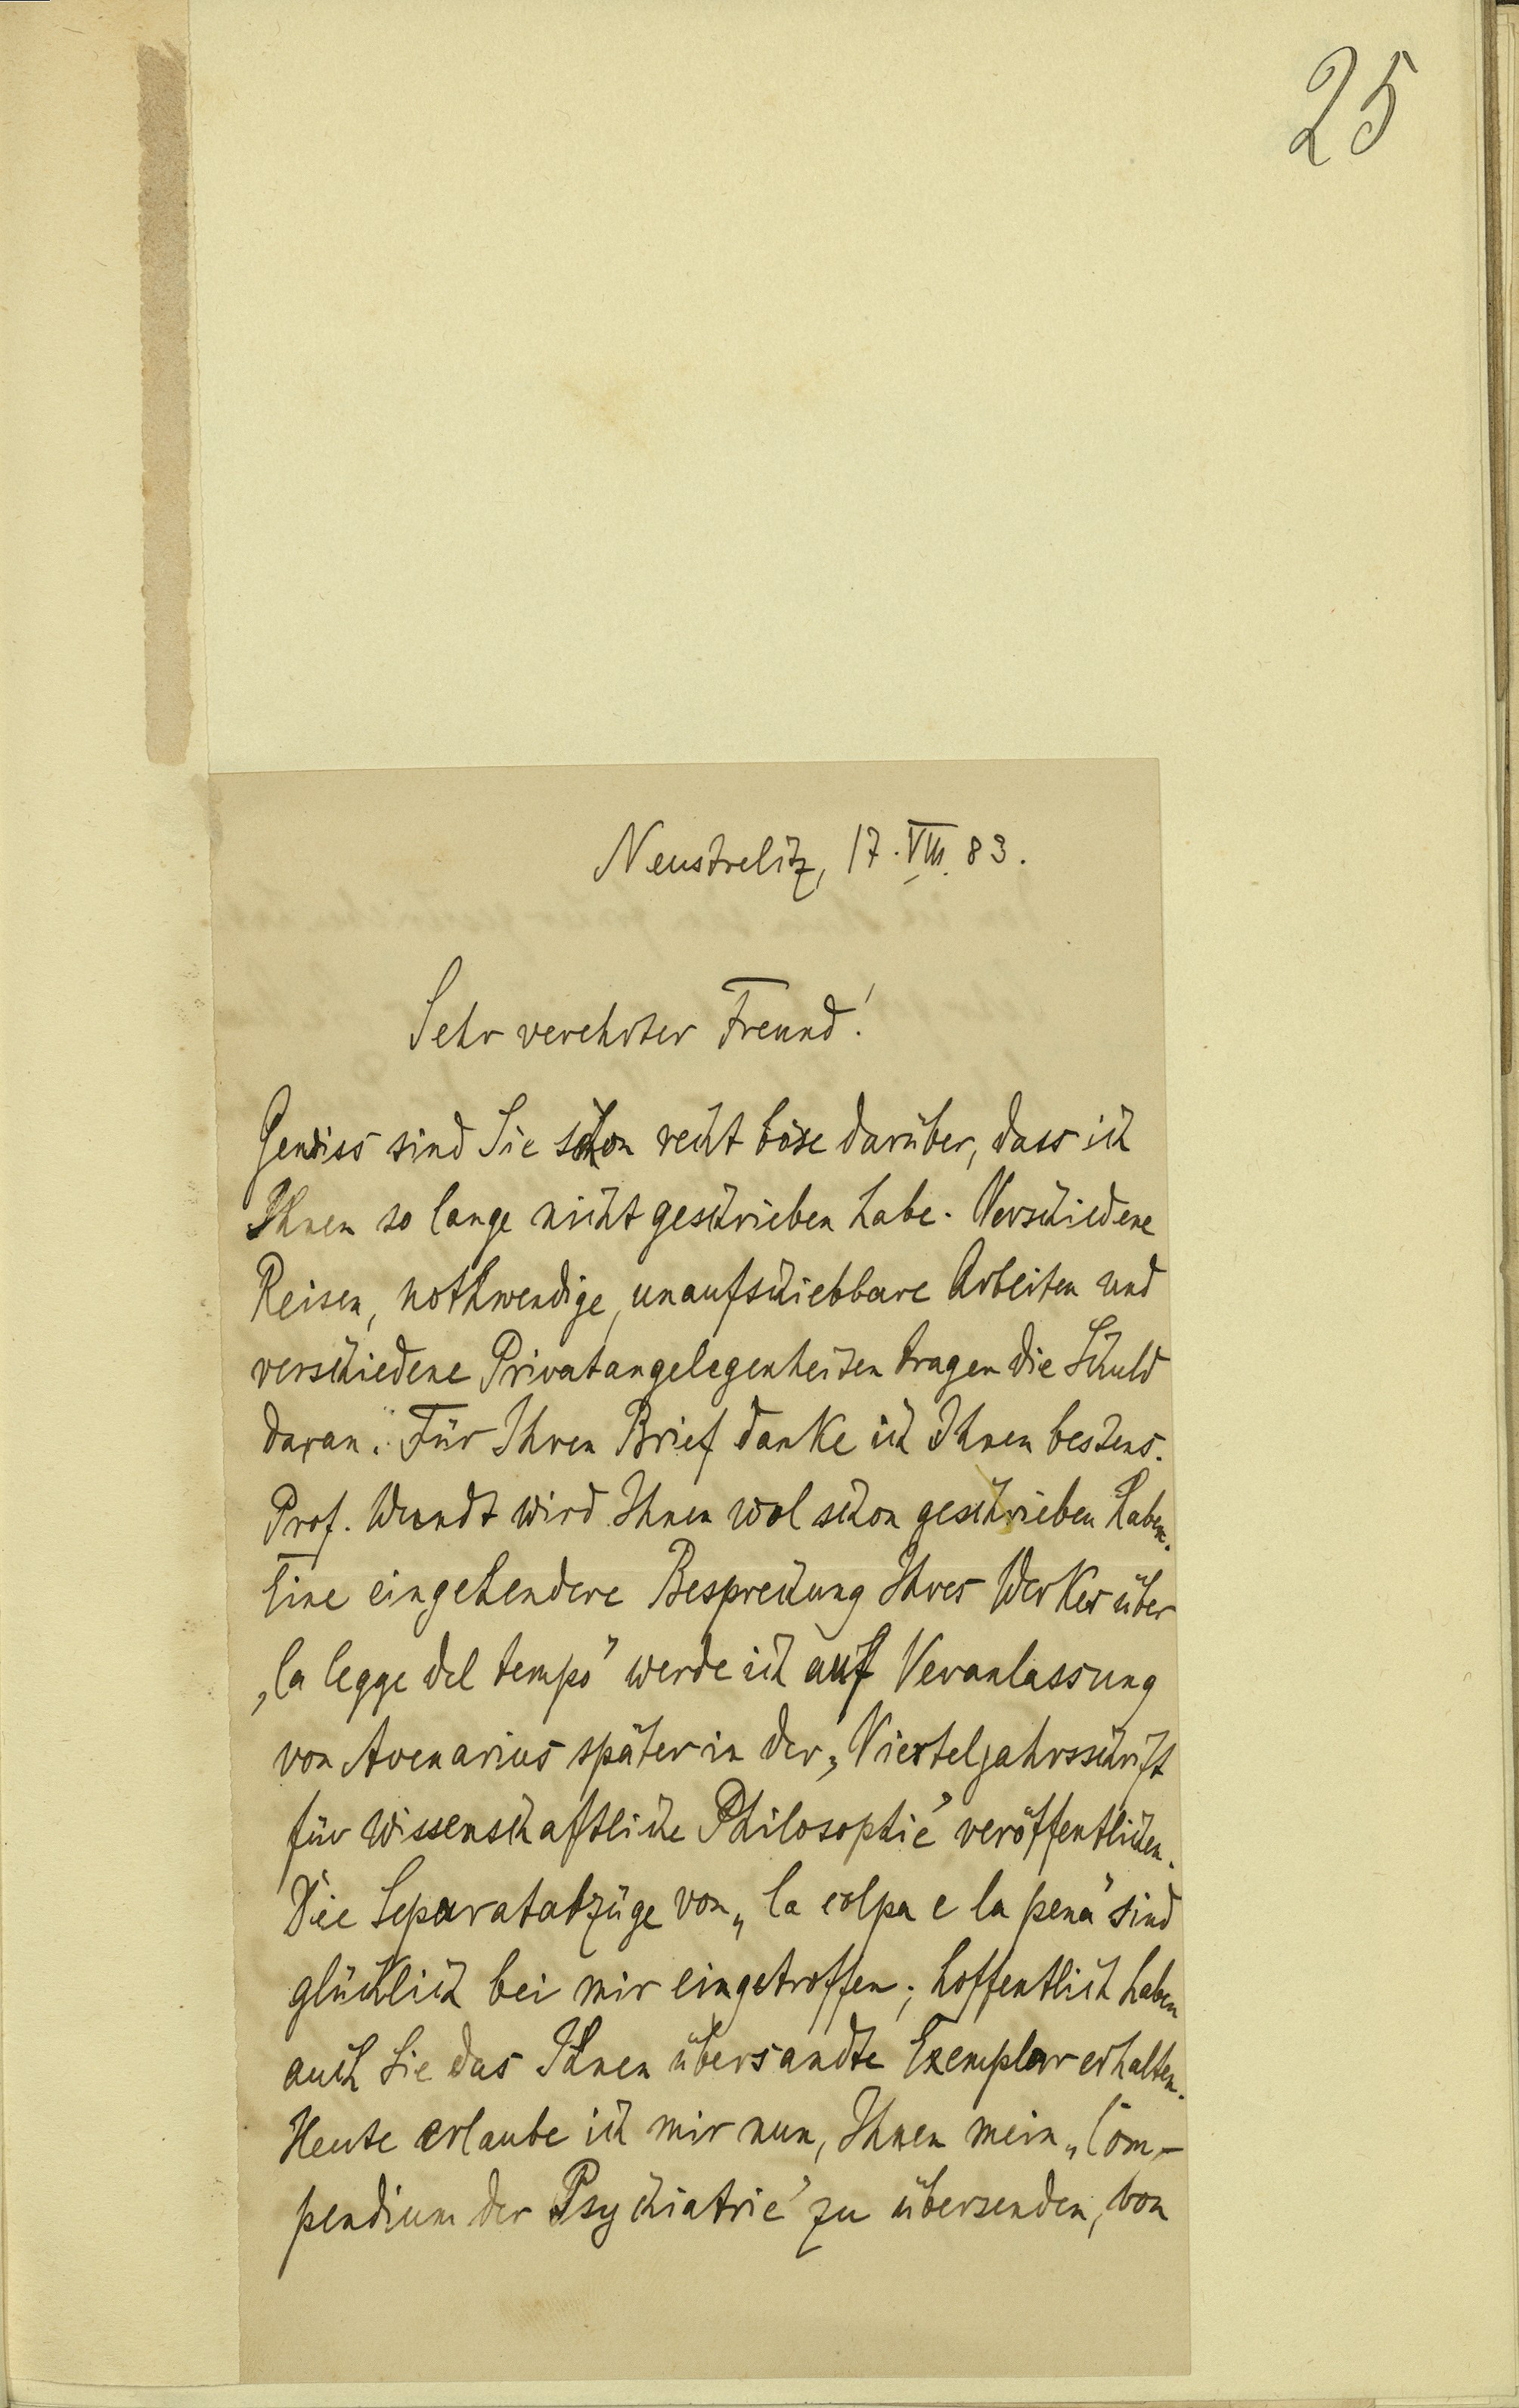 25
Neustrelitz, 17. VIII. 83.
Sehr verehrter Freund!
Gewiss sind Sie schon recht böse darüber, dass ich
Ihnen so lange nicht geschrieben habe. Verschiedene
Reisen, nothwendige, unaufschiebbare Arbeiten und
verschiedene Privatangelegenheiten tragen die Schuld
daran. Für Ihren Brief danke ich Ihnen bestens.
Prof. Wundt wird Ihnen wol schon geschrieben haben.
Eine eingehendere Besprechung Ihres Werkes über
„la legge del tempo“ werde ich auf Veranlassung
von Avenarius später in der „Vierteljahrsschrift
für wissenschaftliche Philosophie“ veröffentlichen.
Die Separatabzüge von „la colpa e la pena“ sind
glücklich bei mir eingetroffen; hoffentlich haben
auch Sie das Ihnen übersandte Exemplar erhalten.
Heute erlaube ich mir nun, Ihnen mein „Com-
pendium der Psychiatrie“ zu übersenden, von